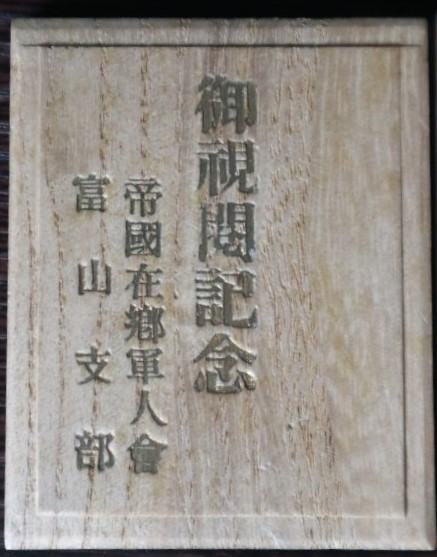 御視閲記念
帝國在鄕軍人會
富山支部